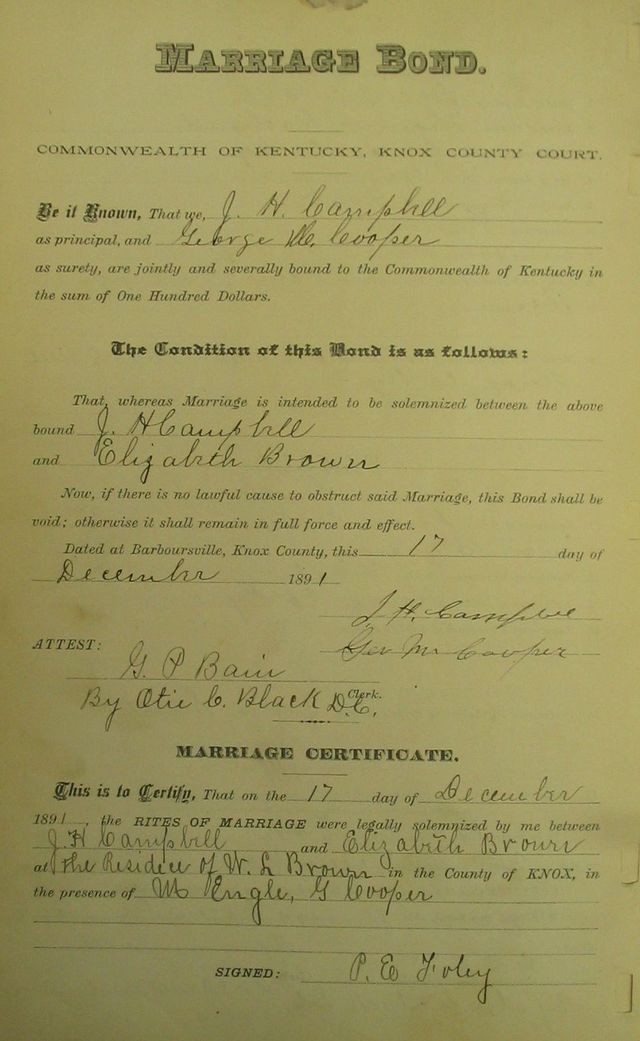 MARRIAGE BOND.
COMMONWEALTH OF KENTUCKY, KNOX COUNTY COURT.
Be it Known, That we, J. H. Campbell
as principal, and George M. Cooper
as surety, are jointly and severally bound to the Commonwealth of Kentucky in
the sum of One Hundred Dollars.
The Condition of this Bond is as follows:
That, whereas Marriage is intended to be solemnized between the above
bound J. H Campbell
and Elizabeth Brown
Now, if there is no lawful cause to obstruct said Marriage, this Bond shall be
void; otherwise it shall remain in full force and effect.
Dated at Barboursville, Knox County, this 17 day of
December 1891
J. H. Campbell
ATTEST: Geo M Cooper
G. P Bain
By Otie C. Black D.C. Clerk.
MARRIAGE CERTIFICATE.
This is to Certify, That on the 17 day of December
1891, the RITES OF MARRIAGE were legally solemnized by me between
J. H Campbell and Elizabeth Brown
at the Residece of W. L Brown in the County of KNOX, in
the presence of M Engle, G Cooper
SIGNED: P. E Foley